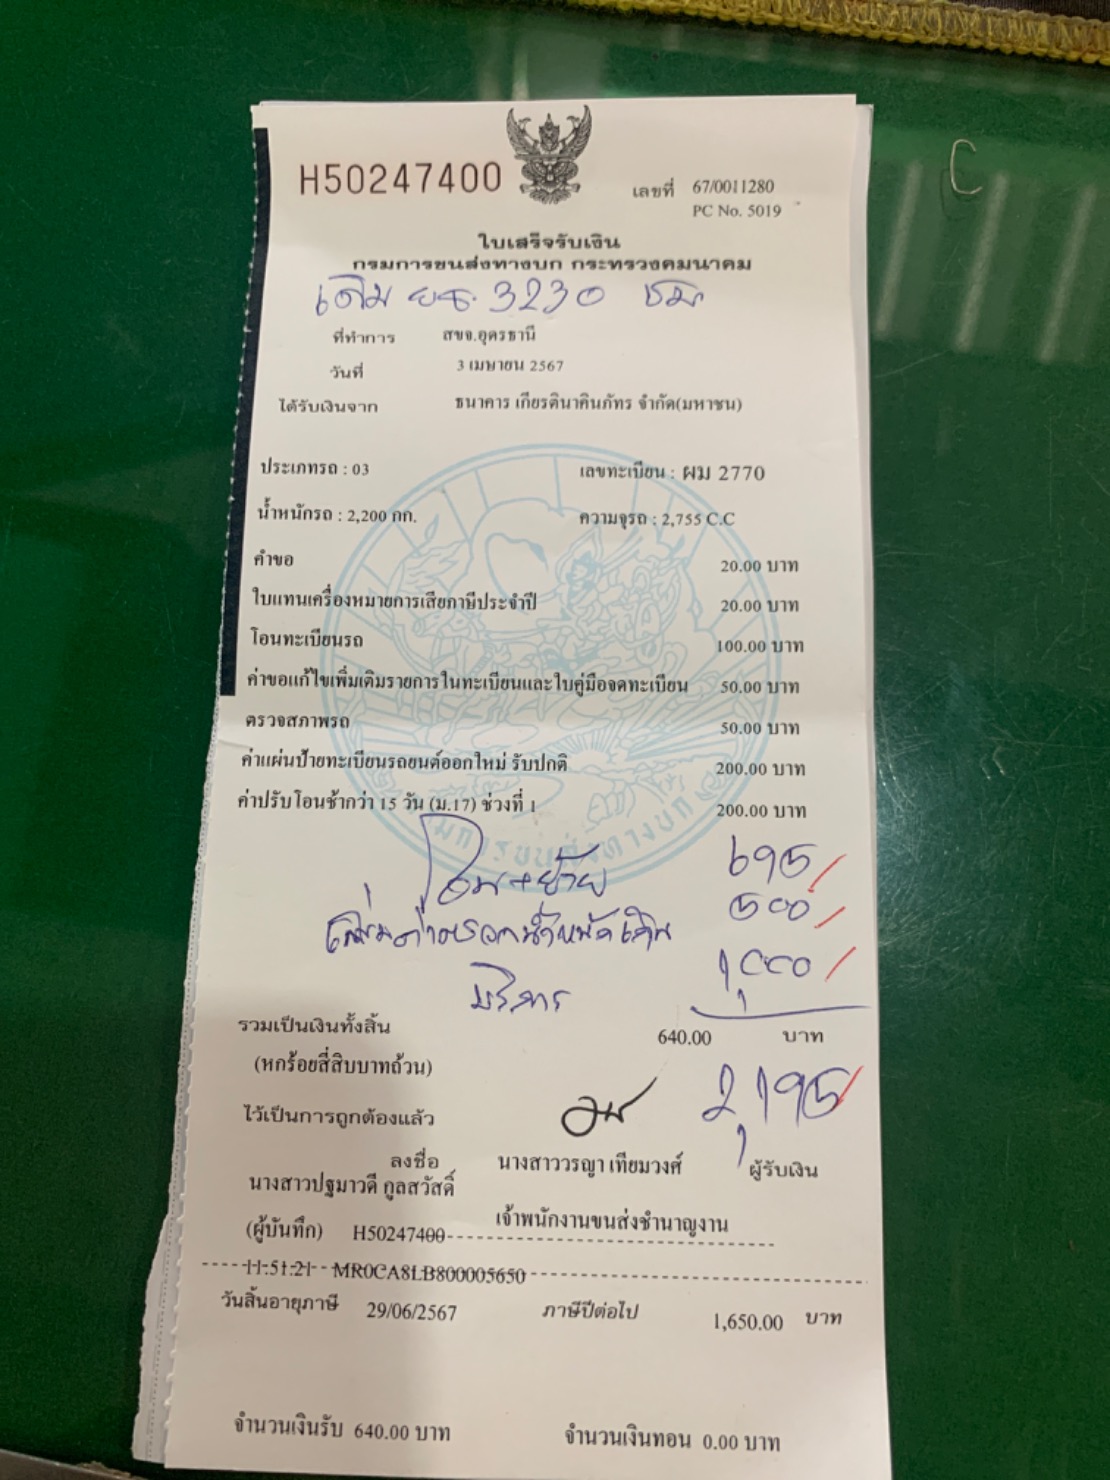 H50247400
เลขที่ 67/0011280
PC No. 5019
ใบเสร็จรับเงิน
กรมการขนส่งทางบก กระทรวงคมนาคม
เดิม ยธ 3230 ชม
ที่ทำการ สขจ.อุดรธานี
วันที่ 3 เมษายน 2567
ได้รับเงินจาก ธนาคาร เกียรตินาคินภัทร จำกัด(มหาชน)
ประเภทรถ : 03 เลขทะเบียน : ผม 2770
น้ำหนักรถ : 2,200 กก. ความจุรถ : 2,755 C.C
คำขอ 20.00 บาท
ใบแทนเครื่องหมายการเสียภาษีประจำปี 20.00 บาท
โอนทะเบียนรถ 100.00 บาท
ค่าขอแก้ไขเพิ่มเติมรายการในทะเบียนและใบคู่มือจดทะเบียน 50.00 บาท
ตรวจสภาพรถ 50.00 บาท
ค่าแผ่นป้ายทะเบียนรถยนต์ออกใหม่ รับปกติ 200.00 บาท
ค่าปรับโอนช้ากว่า 15 วัน (ม.17) ช่วงที่ 1 200.00 บาท
กรมการขนส่งทางบก
โอน+ย้าย 695
500
บริการ 1,000
รวมเป็นเงินทั้งสิ้น 640.00 บาท
(หกร้อยสี่สิบบาทถ้วน)
2,195
ไว้เป็นการถูกต้องแล้ว
ลงชื่อ นางสาววรญา เทียมวงศ์ ผู้รับเงิน
นางสาวปฐมาวดี กูลสวัสดิ์
เจ้าพนักงานขนส่งชำนาญงาน
(ผู้บันทึก) H50247400
11:51:21 MR0CA8LB800005650
วันสิ้นอายุภาษี 29/06/2567 ภาษีปีต่อไป 1,650.00 บาท
จำนวนเงินรับ 640.00 บาท จำนวนเงินทอน 0.00 บาท